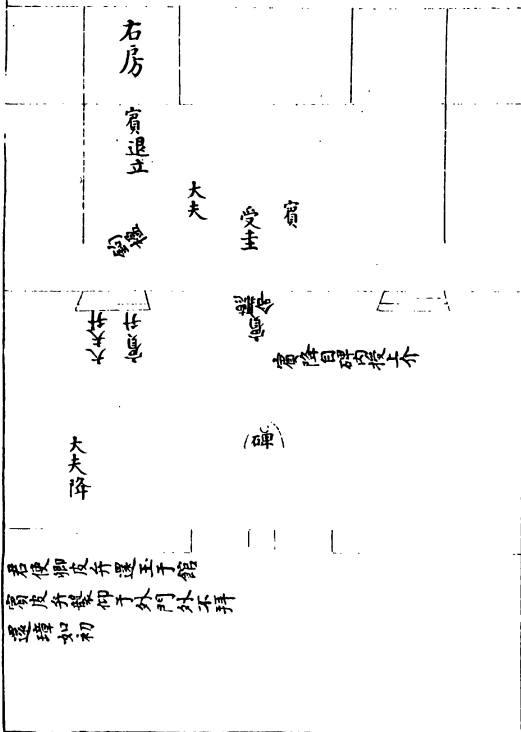 右房
賓退立
大夫
受圭
賓
鈎楹
大夫升
賓升
賓聽命
賓降自碑內授上介
大夫降
(碑)
君使卿皮弁還玉于館
賓皮弁襲仰于外門外不拜
還璋如初